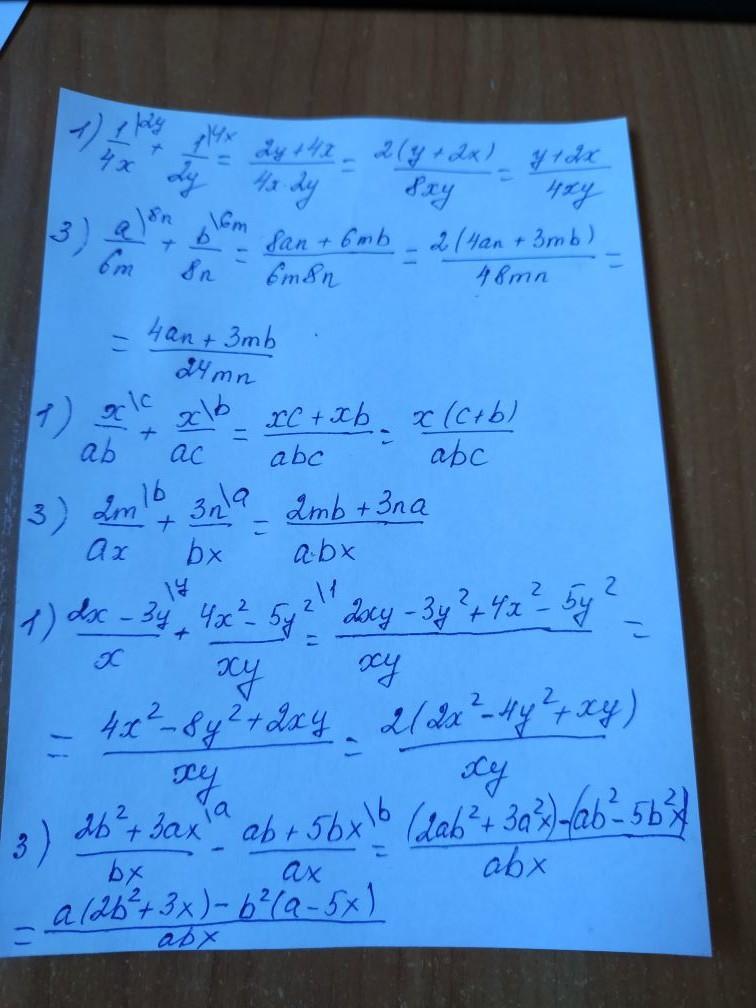 1) 1\2y/4x + 1\4x/2y = 2y+4x/4x·2y = 2(y+2x)/8xy = y+2x/4xy
3) a\8n/6m + b\6m/8n = 8an + 6mb/6m8n = 2(4an + 3mb)/48mn =
= 4an + 3mb/24mn
1) x\c/ab + x\b/ac = xc + xb/abc = x(c+b)/abc
3) 2m\b/ax + 3n\a/bx = 2mb + 3na/a·bx
1) 2x - 3y\y/x + 4x² - 5y²\1/xy = 2xy - 3y² + 4x² - 5y²/xy =
= 4x² - 8y² + 2xy/xy = 2(2x² - 4y² + xy)/xy
3) 2b² + 3ax\a/bx - ab + 5bx\b/ax = (2ab² + 3a²x) - (ab² - 5b²x)/abx
= a(2b² + 3x) - b²(a - 5x)/abx